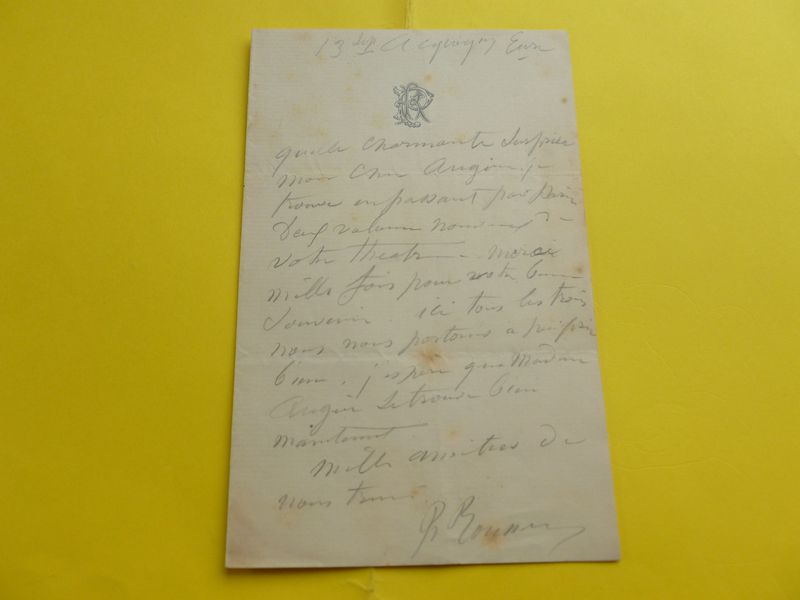 13 Acquigny Eure
PR
quelle charmante surprise
mon cher Augier. je
trouve en passant par Paris
deux volumes nouveaux de
votre theatre - merci
mille fois pour votre bon
souvenir. ici tous les trois
nous nous portons a peu près
bien. j'espere que Madame
Augier se trouve bien
maintenant.
mille amitiés de
nous trois.
Ph Rousseau